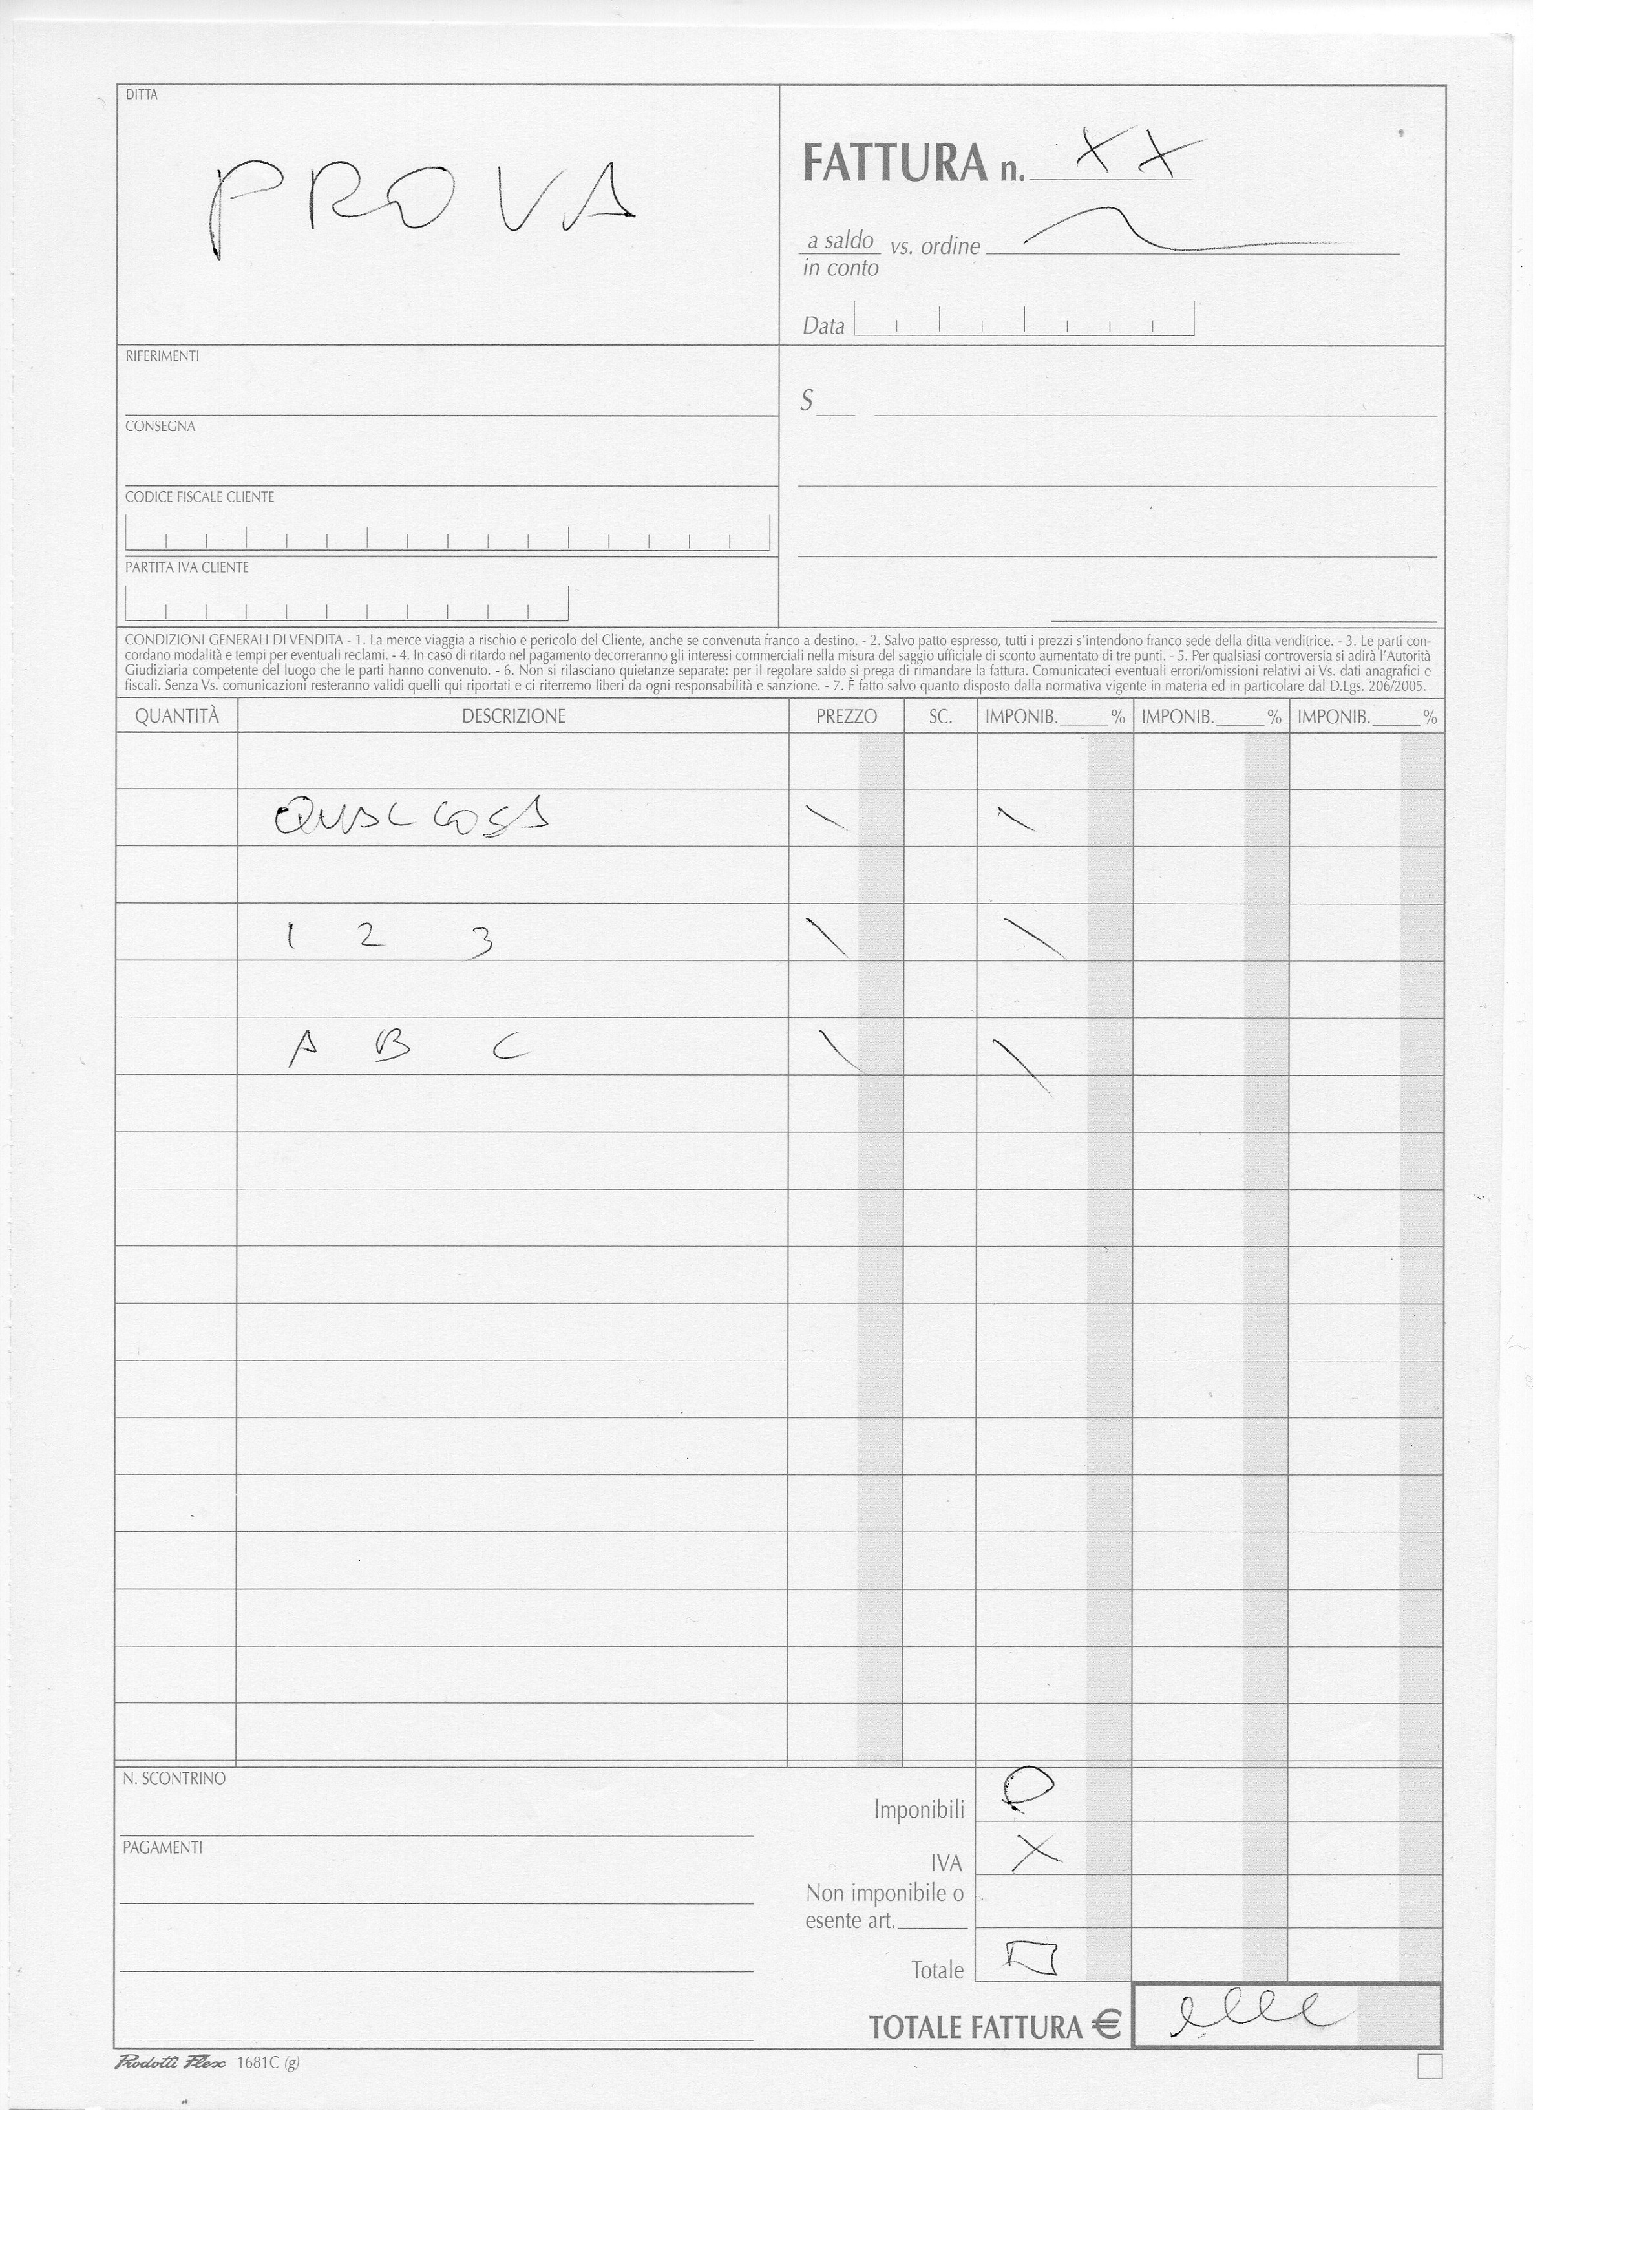 DITTA
PROVA
FATTURA n. XX
a saldo vs. ordine
in conto
Data
RIFERIMENTI
S
CONSEGNA
CODICE FISCALE CLIENTE
PARTITA IVA CLIENTE
CONDIZIONI GENERALI DI VENDITA - 1. La merce viaggia a rischio e pericolo del Cliente, anche se convenuta franco a destino. - 2. Salvo patto espresso, tutti i prezzi s'intendono franco sede della ditta venditrice. - 3. Le parti con-
cordano modalità e tempi per eventuali reclami. - 4. In caso di ritardo nel pagamento decorreranno gli interessi commerciali nella misura del saggio ufficiale di sconto aumentato di tre punti. - 5. Per qualsiasi controversia si adirà l'Autorità
Giudiziaria competente del luogo che le parti hanno convenuto. - 6. Non si rilasciano quietanze separate: per il regolare saldo si prega di rimandare la fattura. Comunicateci eventuali errori/omissioni relativi ai Vs. dati anagrafici e
fiscali. Senza Vs. comunicazioni resteranno validi quelli qui riportati e ci riterremo liberi da ogni responsabilità e sanzione. - 7. È fatto salvo quanto disposto dalla normativa vigente in materia ed in particolare dal D.Lgs. 206/2005.
QUANTITÀ DESCRIZIONE PREZZO SC. IMPONIB.____% IMPONIB.____% IMPONIB.____%
QUALCOSA \ \
1 2 3 \ \
A B C \ \
N. SCONTRINO
Imponibili
PAGAMENTI
IVA X
Non imponibile o
esente art.
Totale
TOTALE FATTURA €
Prodotti Flex 1681C (g)